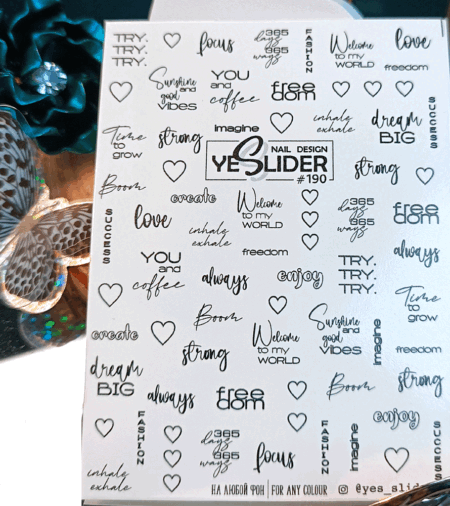 TRY.
TRY.
TRY.
focus
365
days
365
ways
FASHION
Welcome
to my
WORLD
love
freedom
Sunshine
and
good
vibes
YOU
and
coffee
free
dom
SUCCESS
Time
to
grow
strong
imagine
inhale
exhale
dream
BIG
NAIL DESIGN
YESLIDER
#190
strong
Boom
create
Welcome
to my
WORLD
365
days
365
ways
free
dom
SUCCESS
love
inhale
exhale
freedom
always
YOU
and
coffee
always
enjoy
TRY.
TRY.
TRY.
Time
to
grow
create
Boom
Welcome
to my
WORLD
Sunshine
and
good
vibes
imagine
freedom
dream
BIG
strong
always
free
dom
Boom
strong
enjoy
FASHION
365
days
365
ways
focus
FASHION
imagine
SUCCESS
inhale
exhale
НА ЛЮБОЙ ФОН | FOR ANY COLOUR
@yes_slid